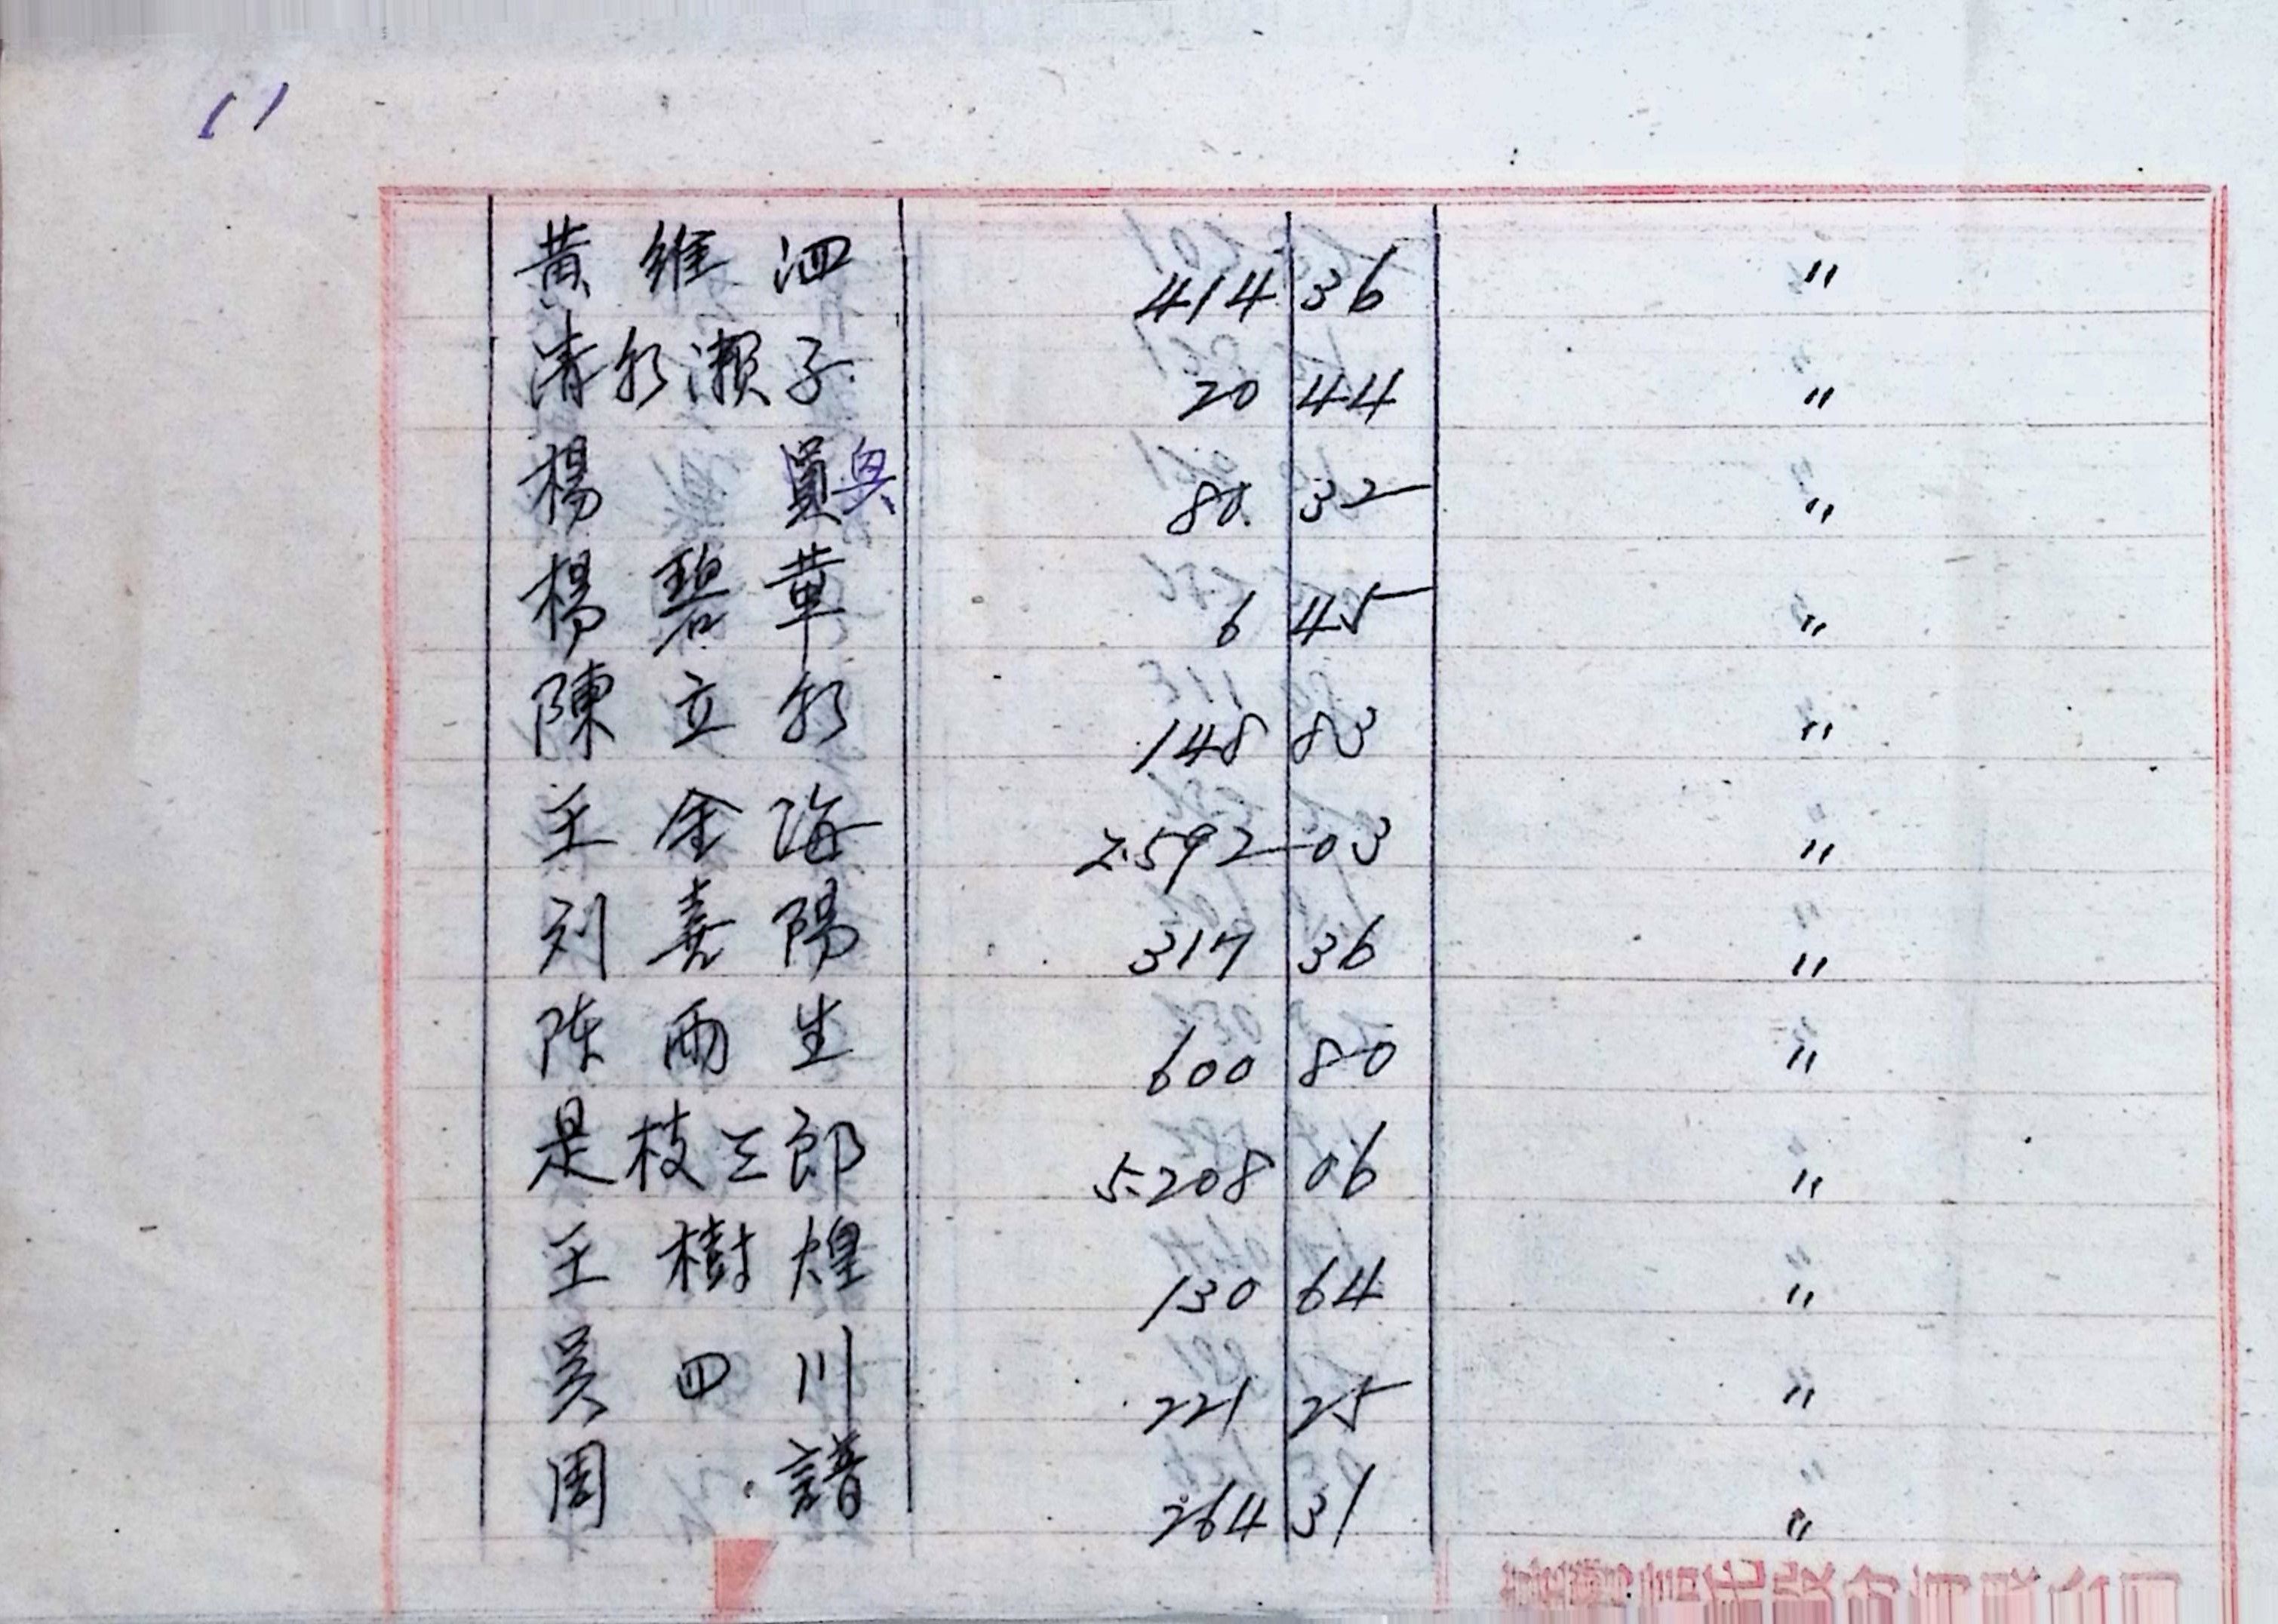 11
黃維泗 414 36 〃
清水瀨子 20 44 〃
楊員 80 32 〃
楊碧華 6 45 〃
陳立水 148 83 〃
王金海 2.592 03 〃
刘喜陽 317 36 〃
陈雨生 600 80 〃
是枝三郎 5.208 06 〃
王樹煌 130 64 〃
吴四川 221 25 〃
周譜 264 31 〃